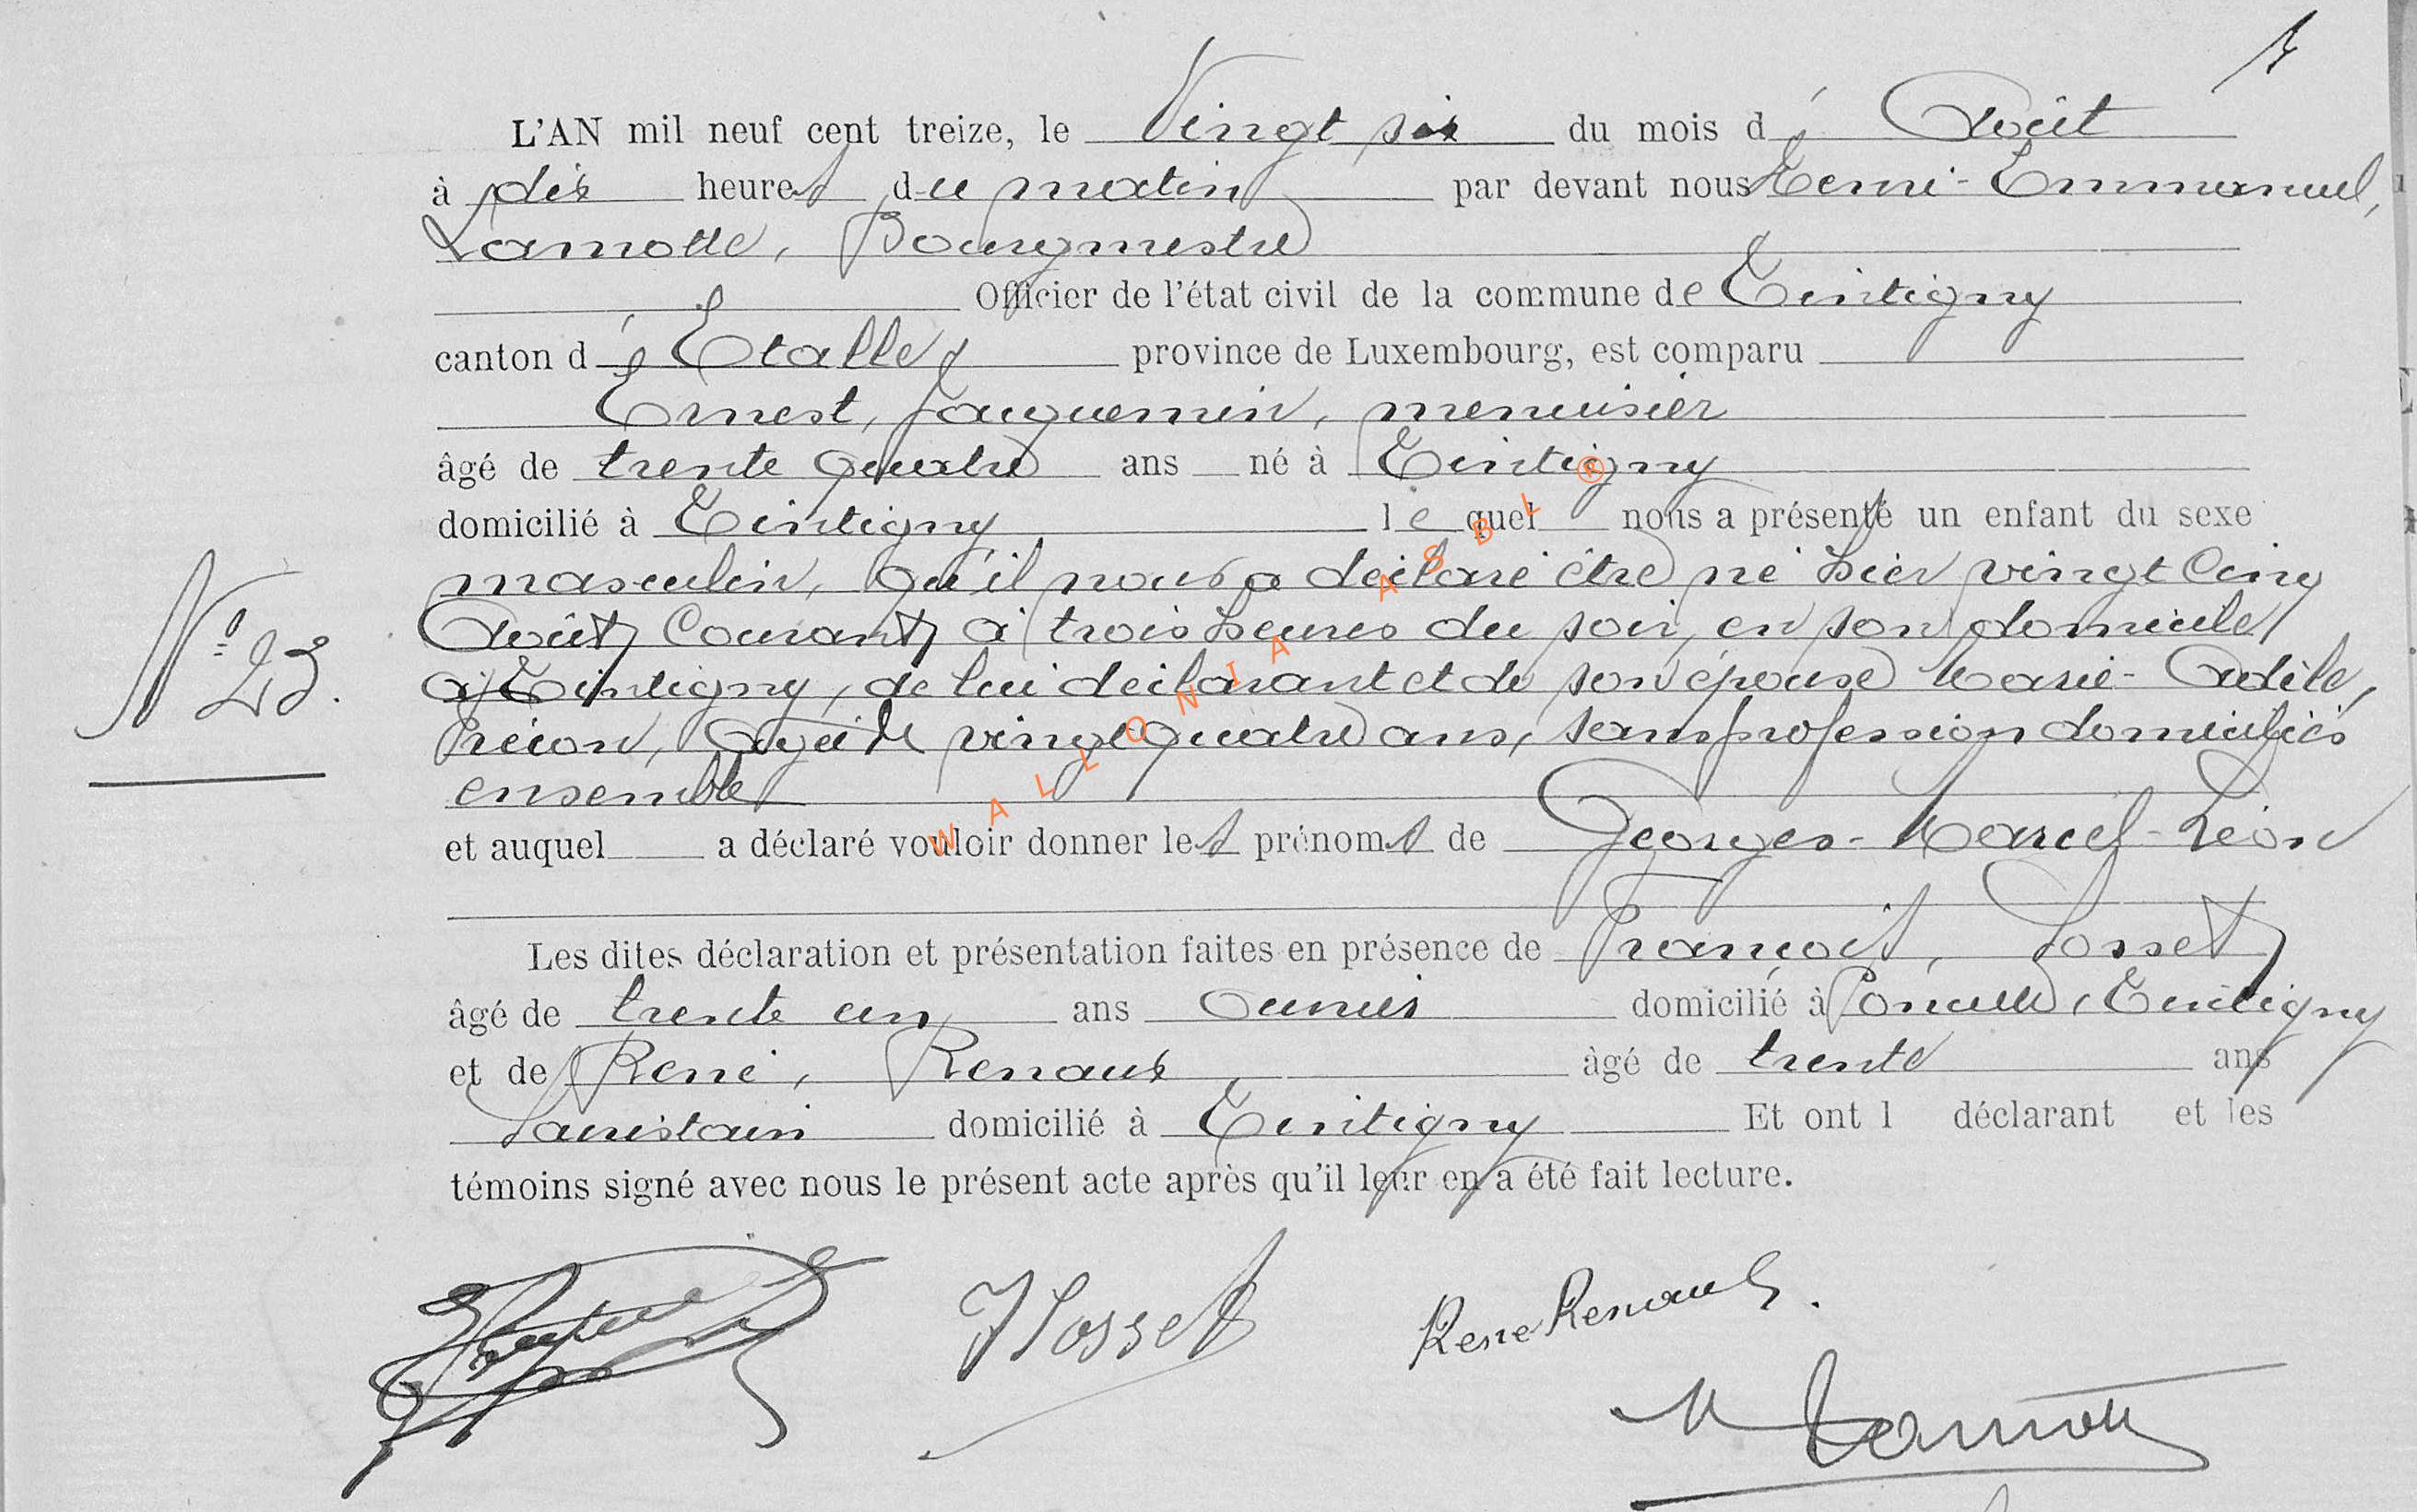 L'AN mil neuf cent treize, le Vingt six du mois d' Août
à dix heures du matin par devant nous Henri-Emmanuel,
Lamotte, Bourgmestre
Officier de l'état civil de la commune de Tintigny
canton d'Etalle, province de Luxembourg, est comparu
Ernest, Jacquemin, menuisier
âgé de trente quatre ans né à Tintigny
domicilié à Tintigny lequel nous a présenté un enfant du sexe
masculin, qu'il nous a déclaré être né hier vingt cinq
Août courant à trois heures du soir, en son domicile
à Tintigny, de lui déclarant et de son épouse Marie-Adèle,
âgée de vingt quatre ans, sans profession domiciliés
ensemble
N° 23.
et auquel a déclaré vouloir donner les prénoms de Georges-Marcel-Léon
Les dites déclaration et présentation faites en présence de François, Josset
âgé de trente un ans domicilié à Poncelle, Tintigny
et de René, Renaux âgé de trente ans
domicilié à Tintigny Et ont l déclarant et les
témoins signé avec nous le présent acte après qu'il leur en a été fait lecture.
Josset
René Renaux.
Lamotte
WALLONIA ASBL ®